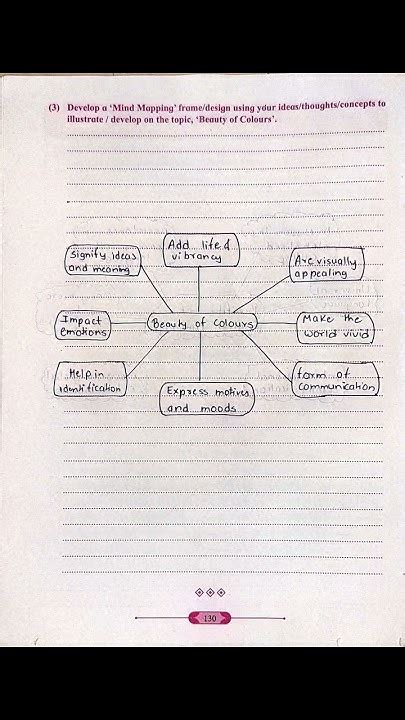 (3) Develop a 'Mind Mapping' frame/design using your ideas/thoughts/concepts to
illustrate / develop on the topic, 'Beauty of Colours'.
Add life &
vibrancy
Signify ideas
and meaning
Are visually
appealing
Impact
emotions
Beauty of colours
Make the
world vivid
Help in
identification
Express motives
and moods
form of
communication
130